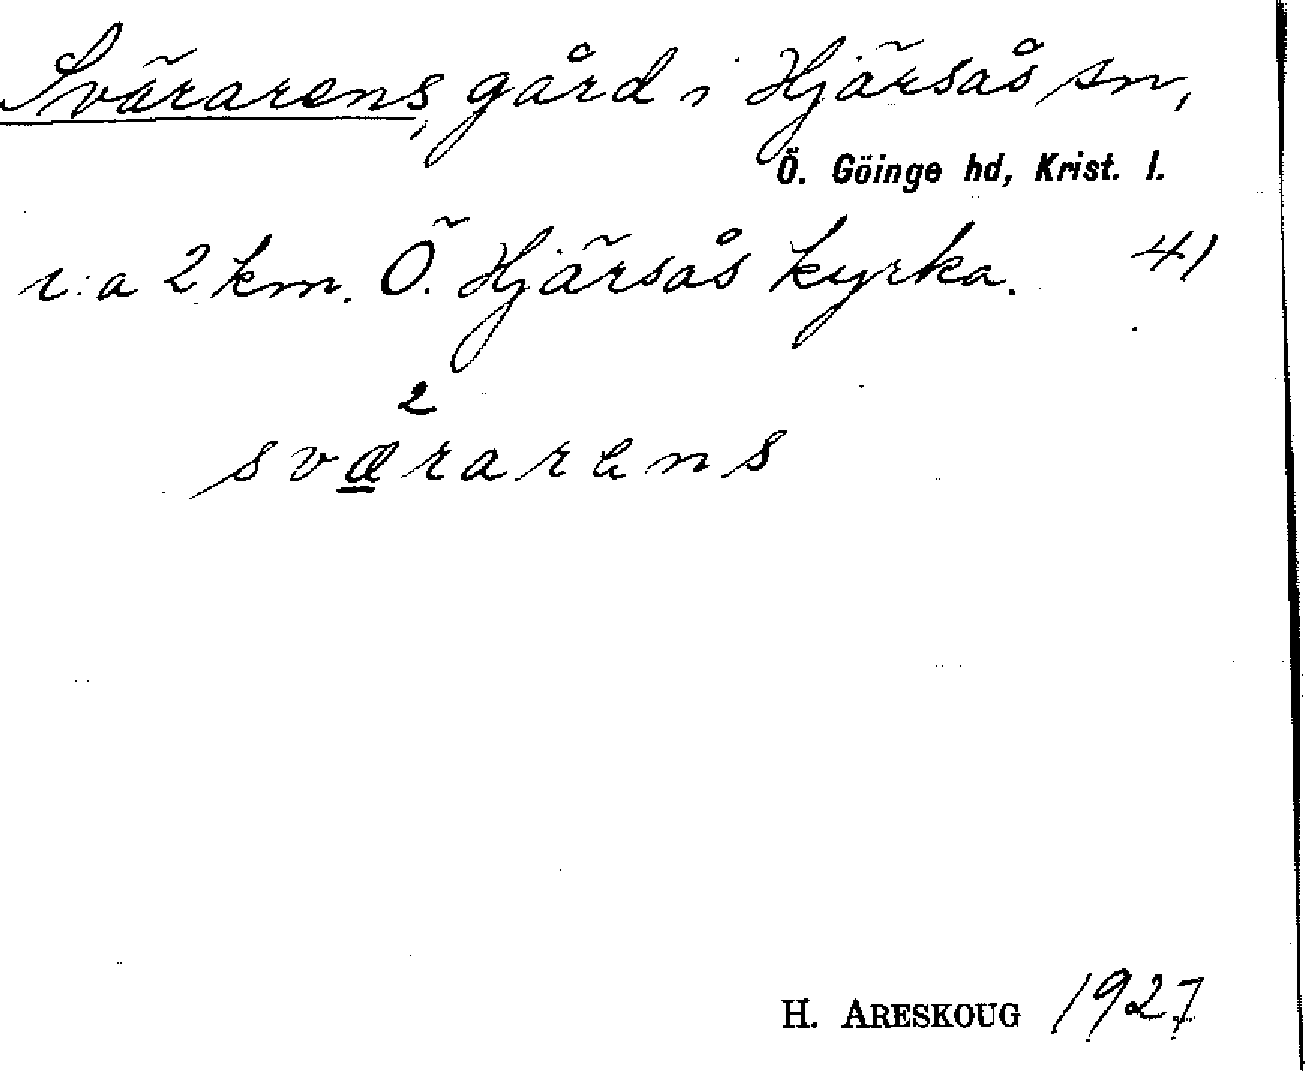 Svärarens, gård i Hjärsås sn,
Ö. Göinge hd, Krist. l.
c:a 2 km. Ö. Hjärsås kyrka. 41
2
sværarens
H. ARESKOUG 1927